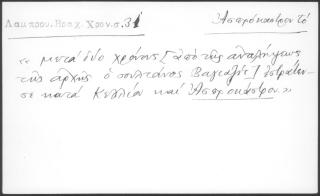 Λαμπρου. Βραχ. Χρον. σ. 31 Ἀσπρόκαστρον τό
« μετά δύο χρόνους [ἀπό τῆς ἀναλήψεως
τῆς ἀρχῆς ὁ σουλτάνος Βαγιαζήτ] ἐστράτευ-
σε κατά Κελλίου καί Ἀσπροκάστρου.»